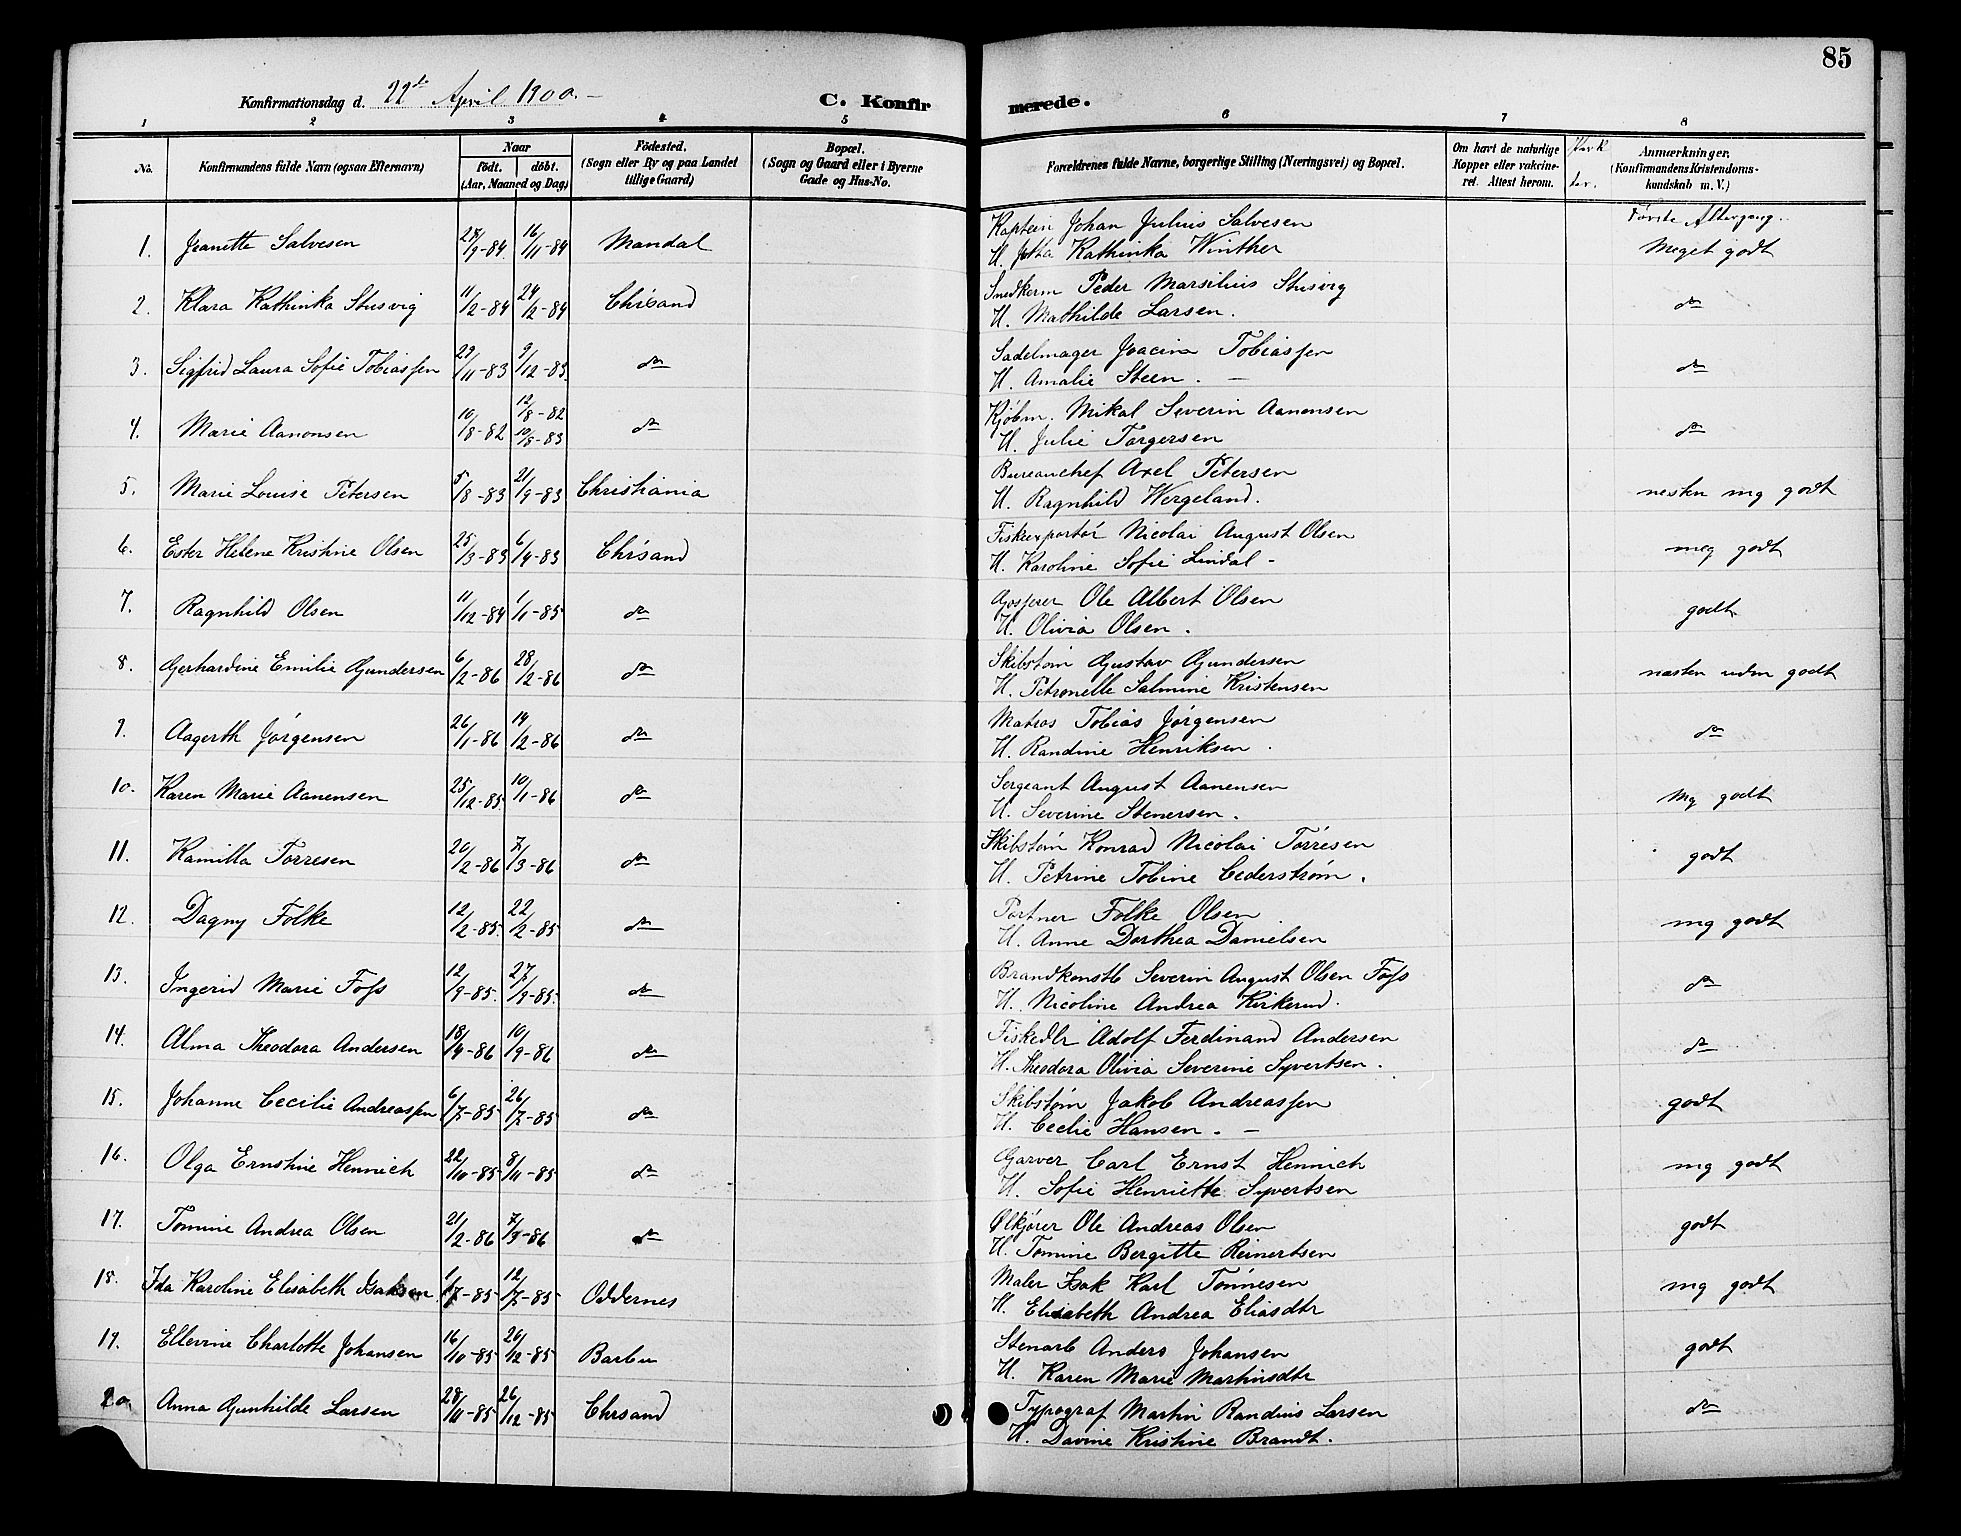 85
Konfirmationsdag d. 22de April 1900. –
C. Konfirmerede.
1 2 3 4 5 6 7 8
No.
Konfirmandens fulde Navn (ogsaa Efternavn)
Naar
födt. döbt.
(Aar, Maaned og Dag)
Födested.
(Sogn eller By og paa Landet
tillige Gaard)
Bopæl.
(Sogn og Gaard eller i Byerne
Gade og Hus-No.
Forældrenes fulde Navne, borgerlige Stilling (Næringsvei) og Bopæl.
Om havt de naturlige
Kopper eller vakcine-
ret. Attest herom.
Anmærkninger.
(Konfirmandens Kristendoms-
kundskab m. V.)
Første Altergang.
1. Jeanette Salvesen 28/9-84. 16/11-84 Mandal Kaptein Johan Julius Salvesen Meget godt
H. Jutta Kathinka Winther
2. Klara Kathinka Stusvig 11/2-84 24/2-84 Chrsand Snedkerm Peder Marsilius Stusvig do
H. Mathilde Larsen.
3. Sigfrid Laura Sofie Tobiassen 29/11-83 9/12-83. do Sadelmager Joacim Tobiassen do
H. Amalie Steen. –
4. Marie Aanonsen 10/8-82 12/8-82 10/8-83 do Kjøbm. Mikal Severin Aanonsen do
H. Julie Torgersen
5. Marie Louise Petersen 5/8-83 21/9-83 Christiania Bureauchef Axel Petersen nesten mg godt
H. Ragnhild Wergeland.
6. Ester Helene Kristine Olsen 25/3-83 6/4-83 Chrsand Fiskexportør Nicolai August Olsen meg godt
H. Karoline Sofie Lindal –
7. Ragnhild Olsen 11/12-84 1/1-85 do Ole Albert Olsen godt
H. Olivia Olsen.
8. Gerhardine Emilie Gundersen 6/2-86 28/2-86 do Skibstøm Gustav Gundersen næsten udm godt
H. Petronelle Salmine Kristensen
9. Aagerth Jørgensen 26/1-86 14/2-86 do Matros Tobias Jørgensen do
H. Randine Henriksen.
10. Karen Marie Aanensen 25/12-85 10/1-86 do Sergeant August Aanensen Mg godt
H. Severine Stenersen.
11. Kamilla Tørresen 20/2-86 7/3-86 do Skibstøm Konrad Nicolai Tørresen godt
H. Petrine Tobine Cederstrøm.
12. Dagny Folke 12/2-85. 22/2-85 do Portner Folke Olsen mg godt
H. Anne Dorthea Danielsen
13. Ingerid Marie Foss 12/9-85. 27/9-85. do Brandkonstb Severin August Olsen Foss do
H. Nicoline Andrea Kirkerud.
14. Alma Theodora Andersen 18/4-86 10/9-86 do Fiskedlr Adolf Ferdinand Andersen do
H. Theodora Olivia Severine Syvertsen.
15. Johanne Cecilie Andreassen 6/7-85 26/7-85 do Skibstøm Jakob Andreassen godt
H. Cecilie Hansen. –
16. Olga Ernstine Hennich 22/10-85 8/11-85 do Garver Carl Ernst Hennich mg godt
H. Sofie Henriette Syvertsen
17. Tomine Andrea Olsen 21/2-86 7/3-86 do Ølkjører Ole Andreas Olsen godt
H. Tomine Bergitte Reinertsen
18. Ida Karoline Elisabeth Isaksen 1/7-85 12/7-85 Oddernes Maler Isak Karl Tønnesen mg godt
H. Elisabeth Andrea Eliasdtr
19. Ellevine Charlotte Johansen 16/10-85 20/12-85 Barbu Stenarb Anders Johansen godt
H. Karen Marie Martinsdtr
20. Anna Gunhilde Larsen 28/11-85 26/12-85 Chrsand Typograf Martin Randius Larsen do
H. Davine Kristine Brandt.